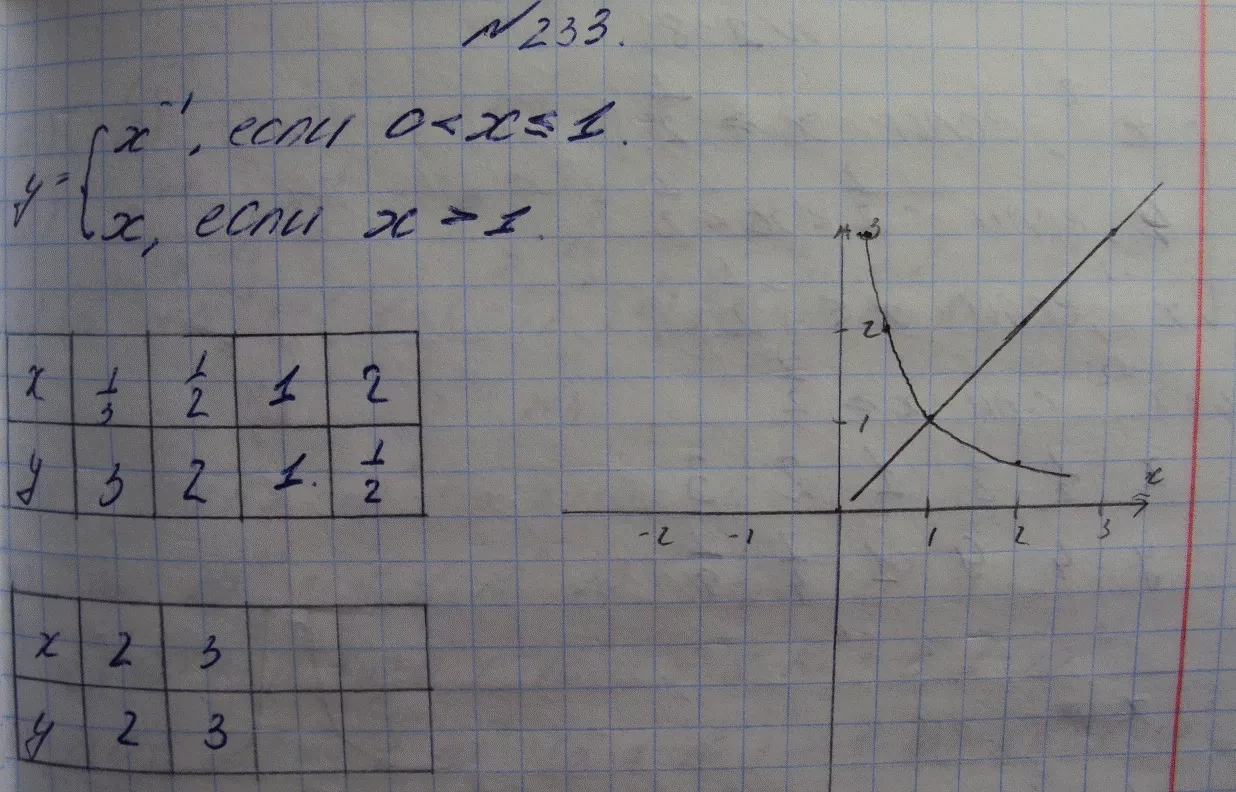 №233.
y = { x⁻¹, если 0 < x ≤ 1.
x, если x > 1.
x 1/3 1/2 1 2
y 3 2 1. 1/2
x 2 3
y 2 3
3
2
1
x
-2 -1 1 2 3